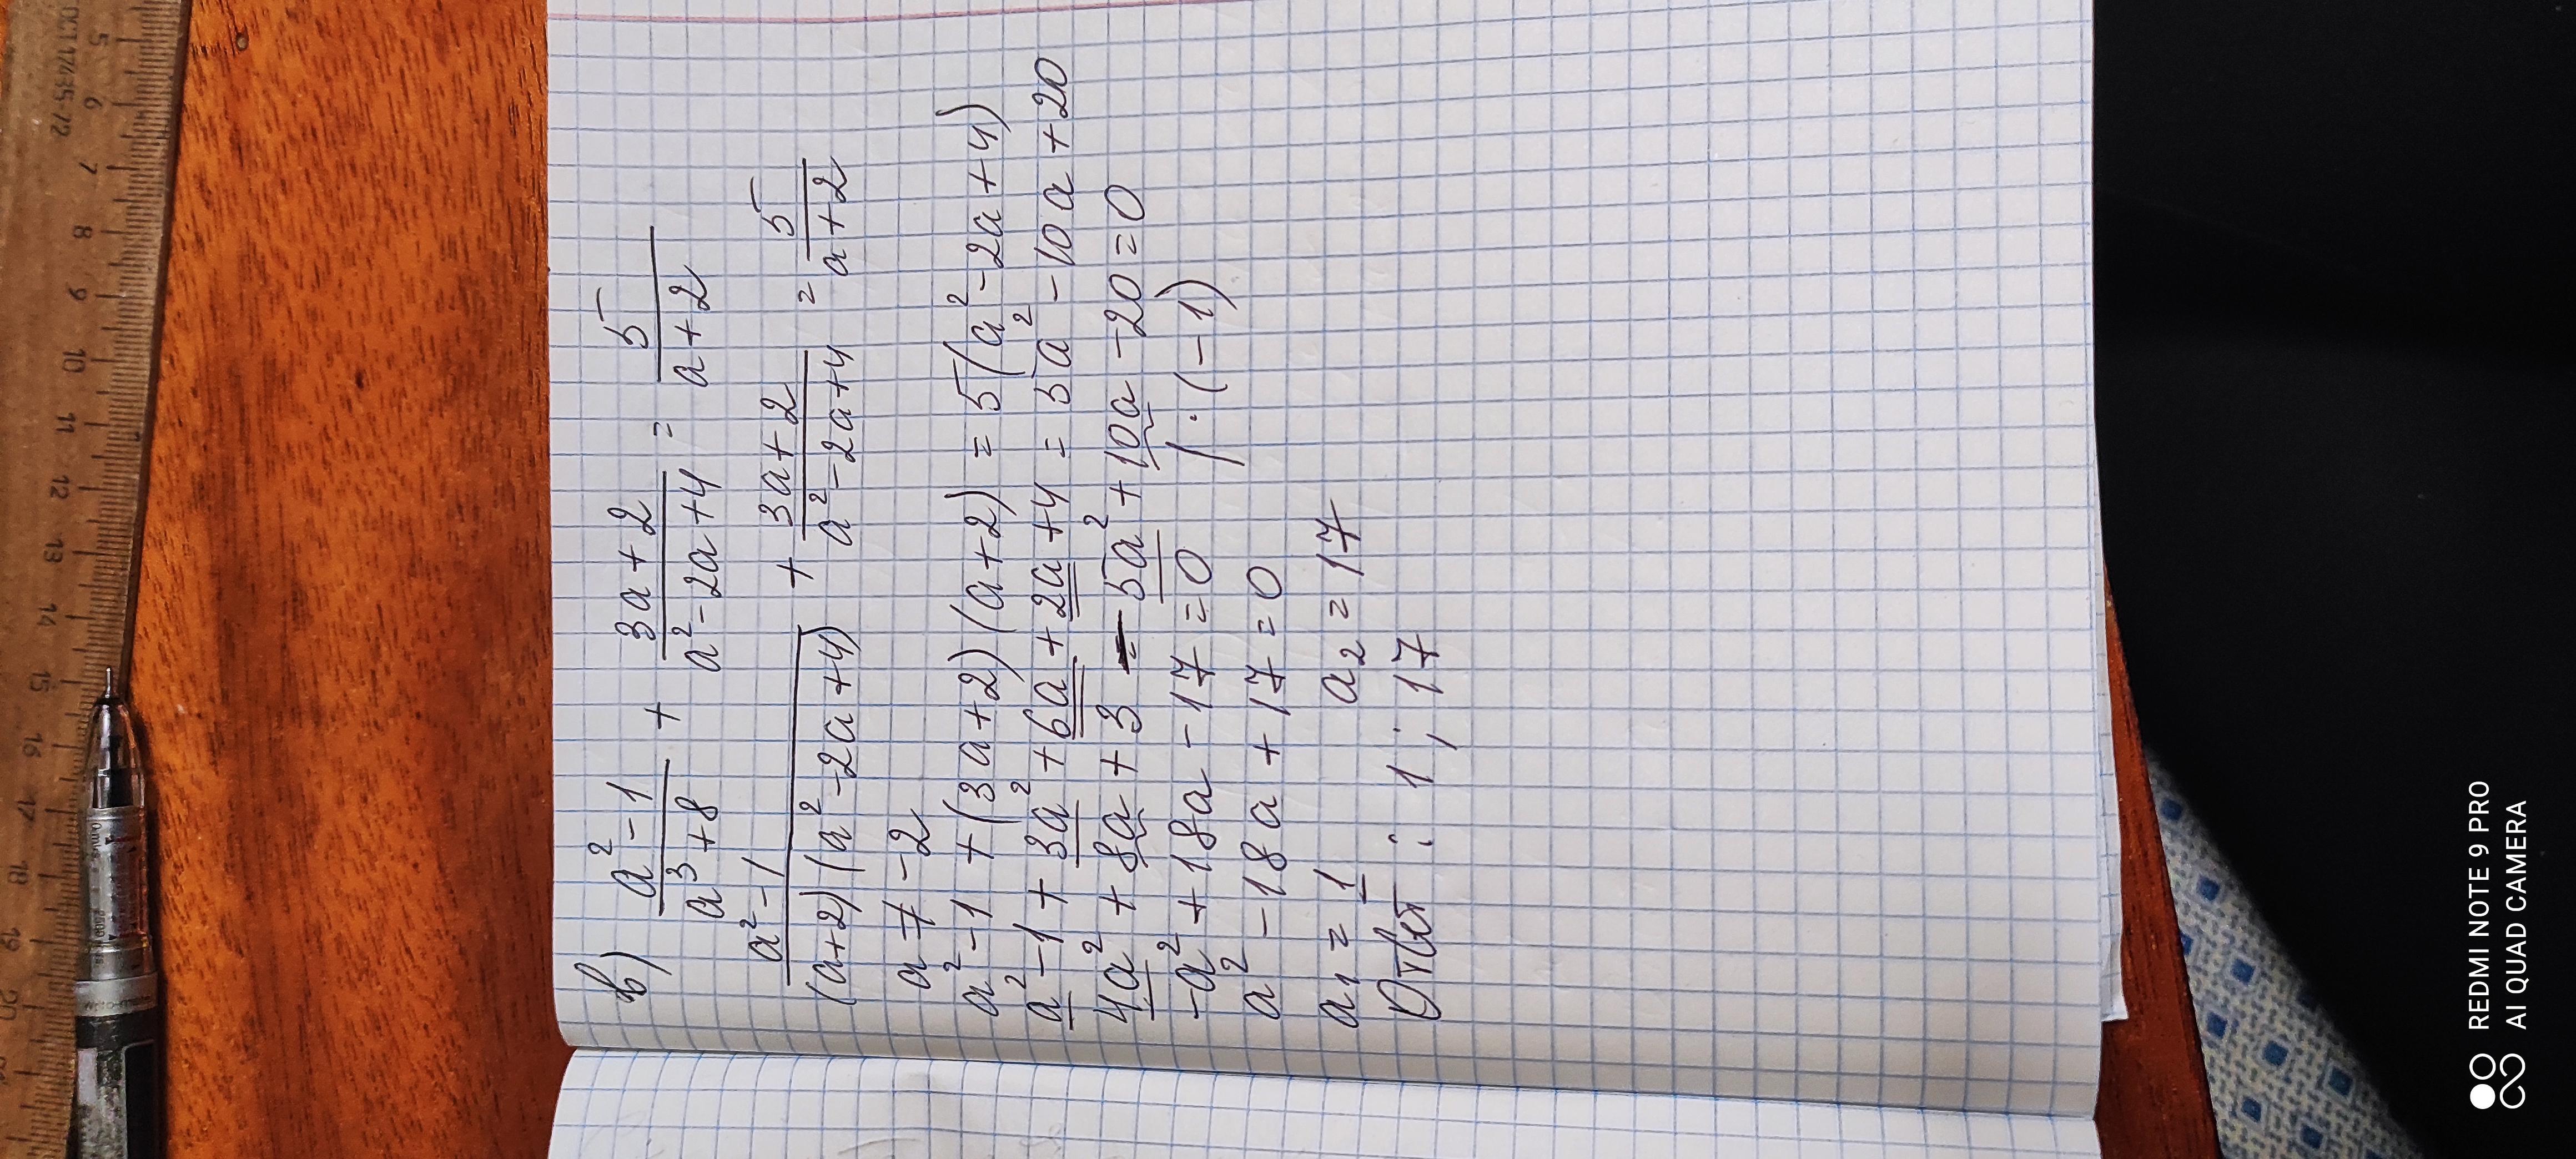 в) a² - 1 / a³ + 8 + 3a + 2 / a² - 2a + 4 = 5 / a + 2
a² - 1 / (a+2)(a² - 2a + 4) + 3a + 2 / a² - 2a + 4 = 5 / a + 2
a ≠ -2
a² - 1 + (3a + 2)(a + 2) = 5(a² - 2a + 4)
a² - 1 + 3a² + 6a + 2a + 4 = 5a² - 10a + 20
4a² + 8a + 3 - 5a² + 10a - 20 = 0
-a² + 18a - 17 = 0 | · (-1)
a² - 18a + 17 = 0
a₁ = 1 a₂ = 17
Ответ: 1; 17
5 6 7 8 9 10 11 12 13 14 15 16 17 18 19 20
REDMI NOTE 9 PRO
AI QUAD CAMERA